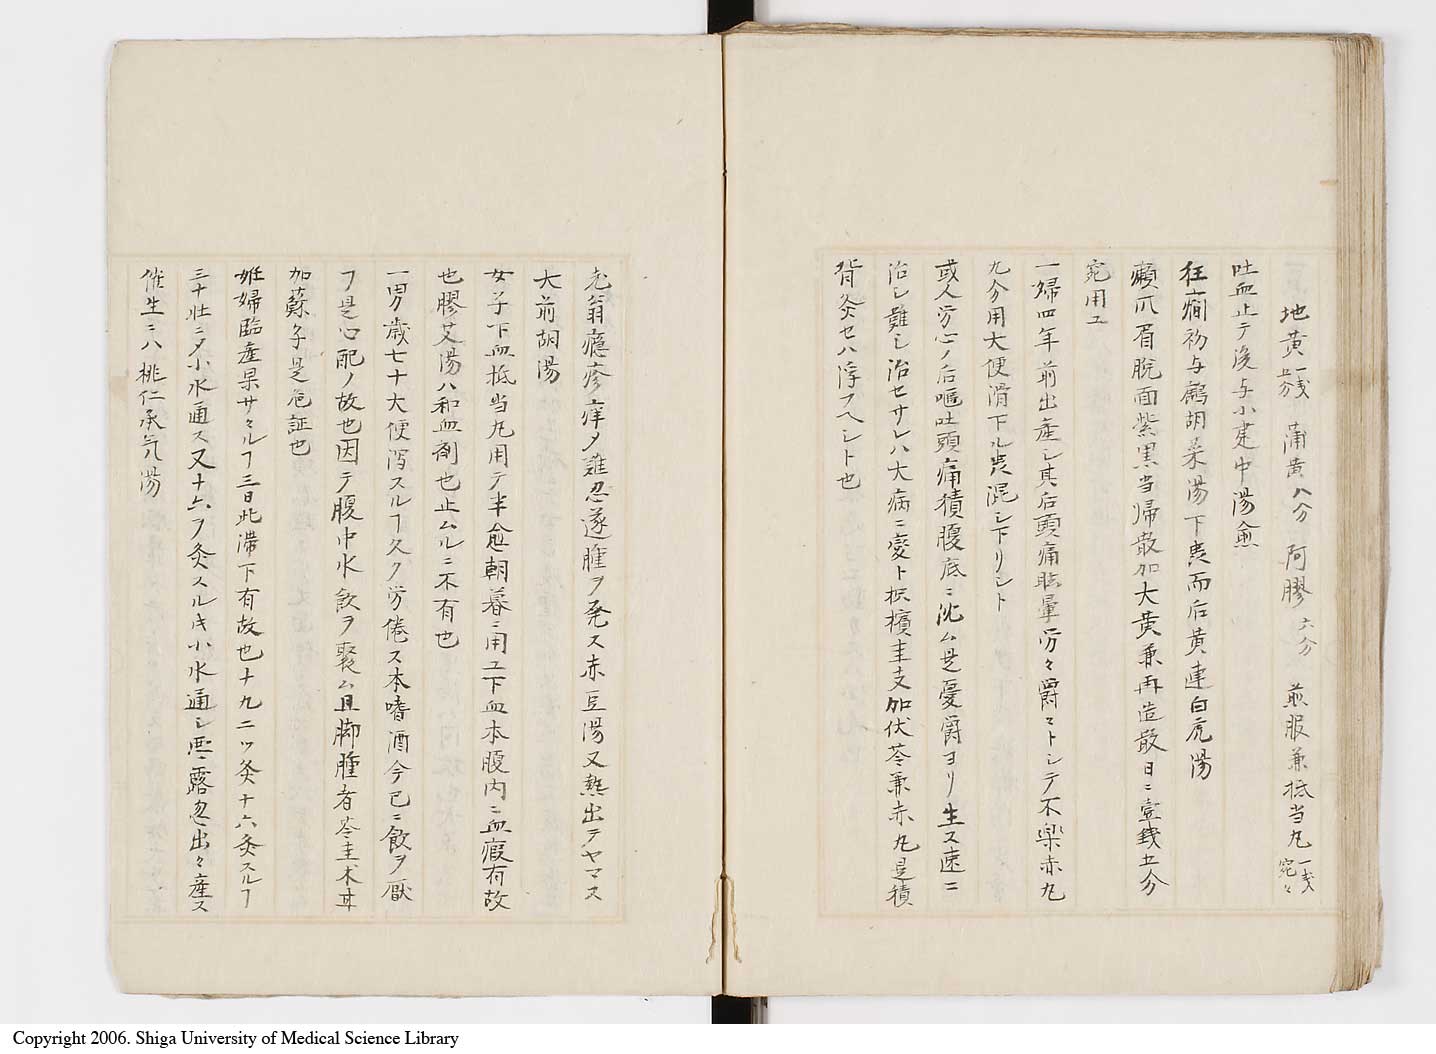 地黄一戔五分 蒲黄八分 阿膠六分 煎服兼抵当丸一戔宛々
吐血止テ後与小建中湯愈
狂癇初与鷓胡菜湯下虫而后黄連白虎湯
癩爪眉脱面紫黒当帰散加大黄兼再造散日ニ壹銭五分
宛用ユ
一婦四年前出産シ其后頭痛眩暈労々欝々トシテ不楽赤丸
九分用大便滑下ル虫混シ下リシト
或人労心ノ后嘔吐頭痛積腹底ニ沈ム是憂欝ヨリ生ス速ニ
治シ難シ治セサレハ大病ニ変ト桂支加伏苓兼赤丸是積
背灸セハ浮フヘシト也
老翁癮疹痒〆難忍遂腫ヲ発ス赤豆湯又熱出テヤマス
大前胡湯
女子下血抵当丸用テ半愈朝暮ニ用ユ下血本腹内ニ血瘕有故
也膠艾湯ハ和血剤也止ムルニ不有也
一男歳七十大便瀉スルヿ久ク労倦ス本嗜酒今已ニ飲ヲ厭
フ是心配ノ故也因テ腹中水飲ヲ聚ム且脚腫者苓圭朮甘
加蘇子是危証也
妊婦臨産果サヽルヿ三日此滞下有故也十九二ツ灸十六灸スルヿ
三十壮ニ〆小水通ス又十六ヲ灸スルキ小水通シ悪露忽出々産ス
催生ニハ桃仁承気湯